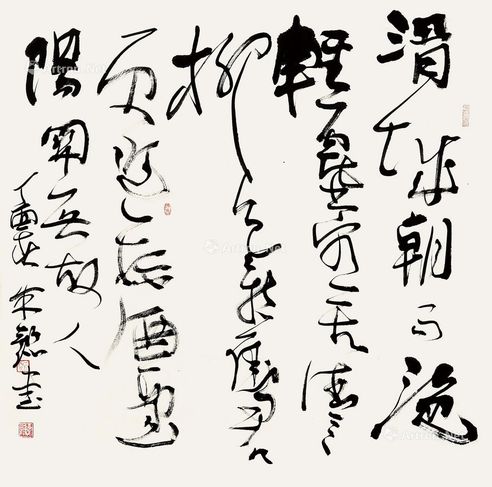 渭城朝雨浥
輕塵客舍青々
柳色新勸君
更盡一杯酒西出
陽關无故人
丁酉書